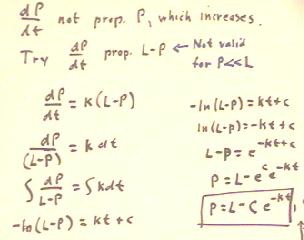 dP/dt not prop. P, which increases.
Try dP/dt prop. L-P ← Not valid
for P<<L
dP/dt = K(L-P)
dP/(L-P) = k dt
∫ dP/(L-P) = ∫ kdt
-ln(L-P) = kt+c
-ln(L-P) = kt+c
ln(L-P) = -kt+c
L-P = e^(-kt+c)
P = L - e^c e^(-kt)
P = L - C e^(-kt)